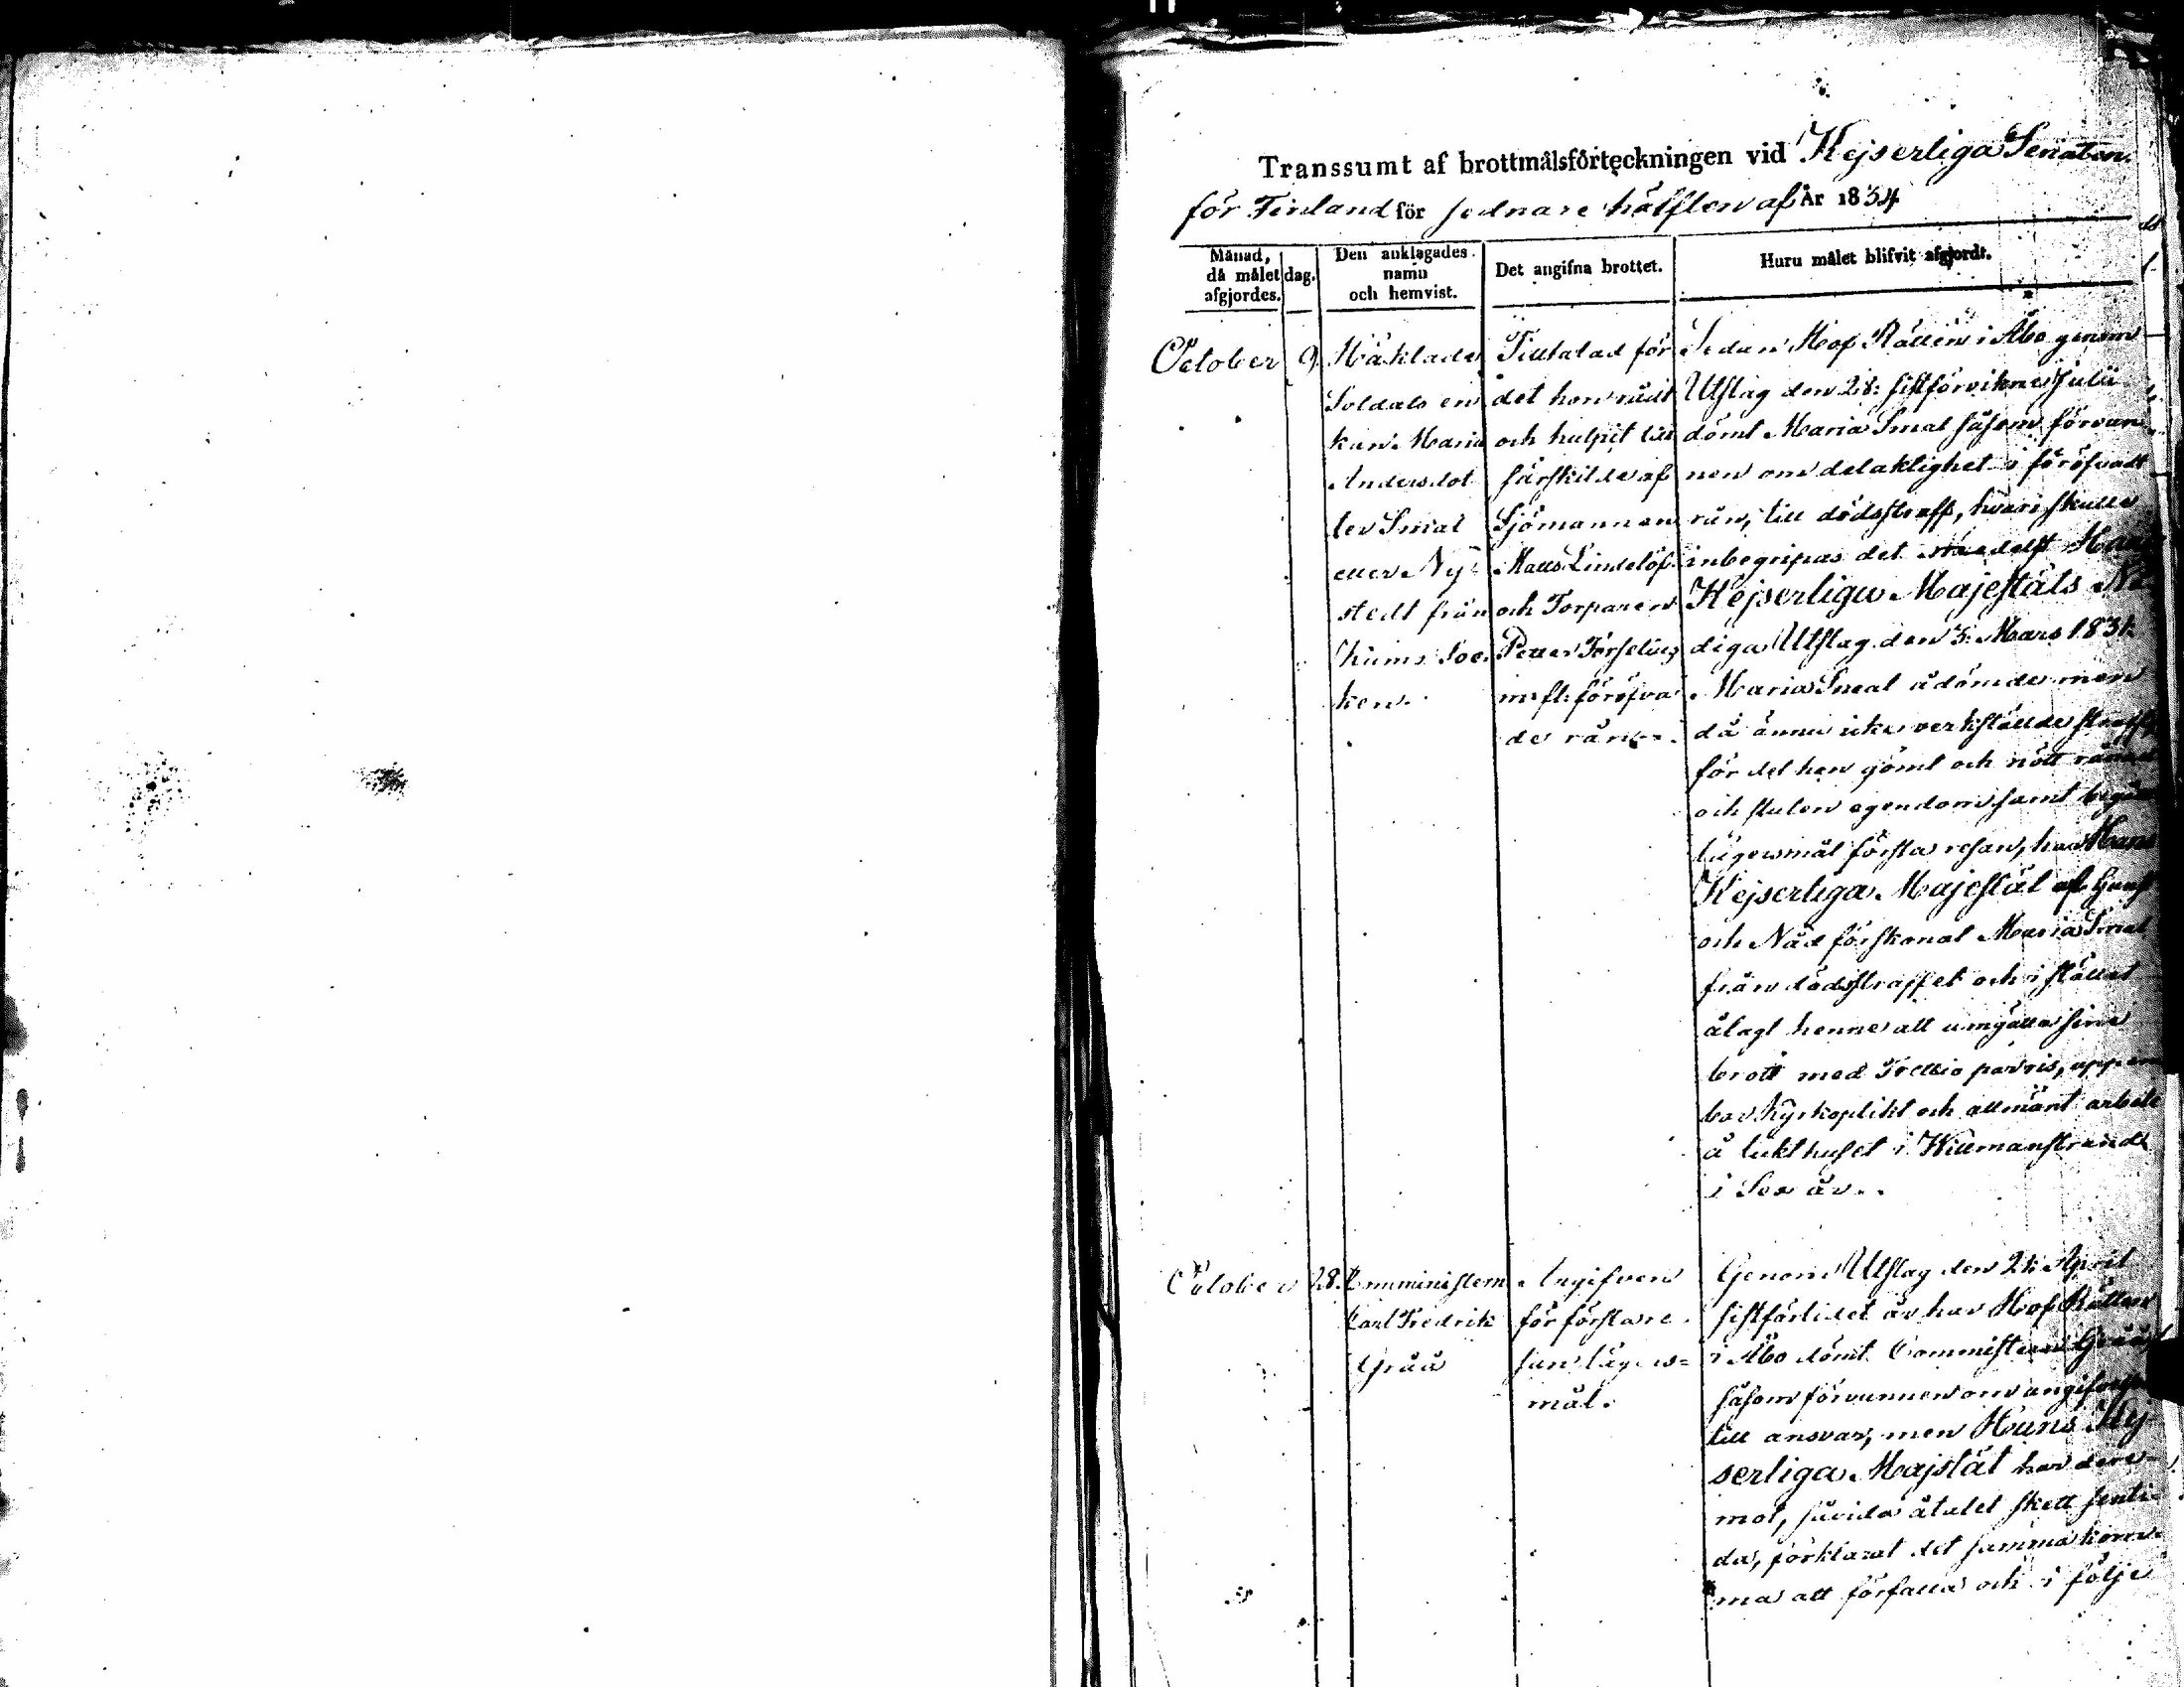 Transsumt af brottmålsförteckningen vid Kejserliga Senaten
för Finland för sednare hälften af År 1834
Månad, då målet afgjordes.
dag.
Den anklagades namn och hemvist.
Det angifna brottet.
Huru målet blifvit afgjordt.
October 9.
Häktade
Soldats en
kan Maria
Andersdot
ter Smal
eller Ny-
stedt från
Kumo Soc
ken.
Tilltalad för
det hon rådt
och hulpit till
särskilde af
Sjömannen
Matts Lindelöf
och Torparen
Petter Törselius
m. fl. föröfva
de rån.
Sedan Hof Rätten i Åbo genom
Utslag den 28: sistförvikne Julii
dömt Maria Smal såsom förvun
nen om delaktighet i föröfvadt
rån, till dödsstraff, hvari skulle
inbegripas det medelst Hans
Kejserliga Majestäts Nå
diga Utslag den 3: Mars 1831
Maria Smal ådömde men
då ännu icke verkställde straff
för det hon gömt och nött rånad
och stulen egendom samt begått
lägersmål första resan, har Hans
Kejserliga Majestät af Gunst
och Nåd förskonat Maria Smal
från dödsstraffet och i stället
ålagt henne att umgälla sine
brott med Trettio par ris, uppen
bar Kyrkoplikt och allmänt arbete
å tukthuset i Willmanstrand
i Sex år.
October 28.
Comministern
Carl Fredrik
Gråå
Angifven
för första re
san lägers=
mål.
Genom Utslag den 2: April
sistförlidet år har Hof Rätten
i Åbo dömt Comministern Gråå
såsom förvunnen om angifvelsen
till ansvar, men Hans Kej
serliga Majstät har dere
mot, såvida åtalet skett senti
da, förklarat det samma kom
ma att förfalla och i följe